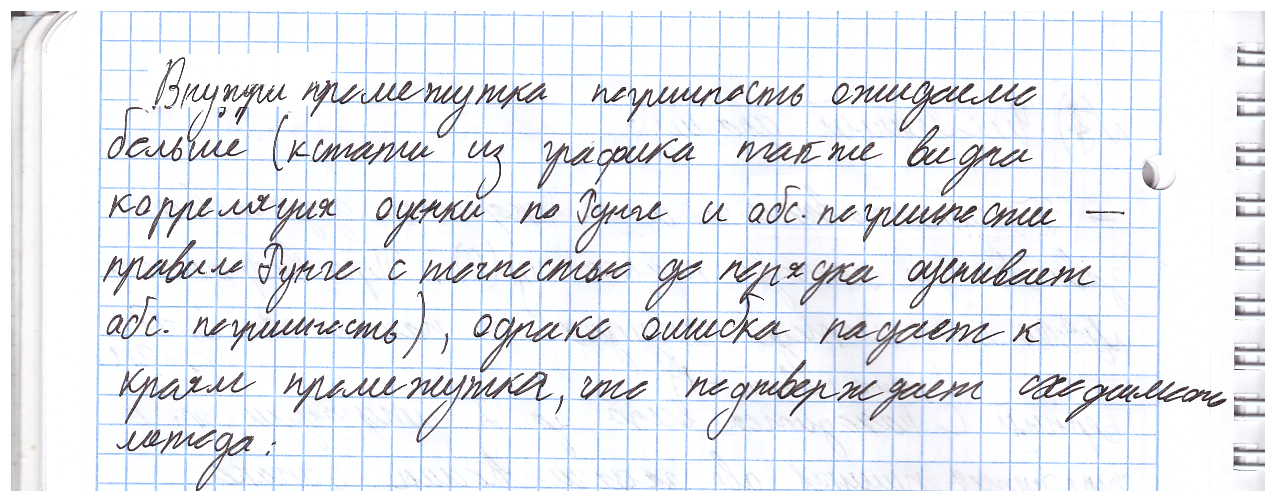 Внутри промежутка погрешность ожидаемо
больше (кстати из графика также видна
корреляция оценки по Рунге и абс. погрешности —
правило Рунге с точностью до порядка оценивает
абс. погрешность), однако ошибка падает к
краям промежутка, что подтверждает сходимость
метода: